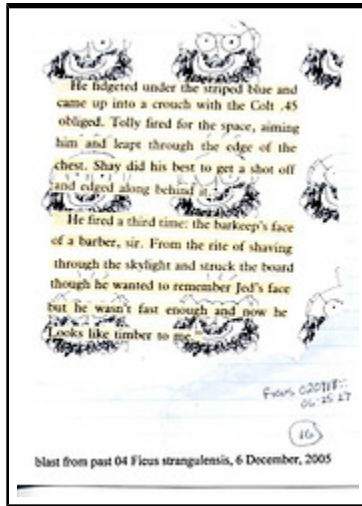 He fidgeted under the striped blue and
came up into a crouch with the Colt .45
obliged. Tolly fired for the space, aiming
him and leapt through the edge of the
chest. Shay did his best to get a shot off
and edged along behind it.
He fired a third time: the barkeep's face
of a barber, sir. From the rite of shaving
through the skylight and struck the board
though he wanted to remember Jed's face
but he wasn't fast enough and now he
Looks like timber to me."
06:25:27
16
blast from past 04 Ficus strangulensis, 6 December, 2005